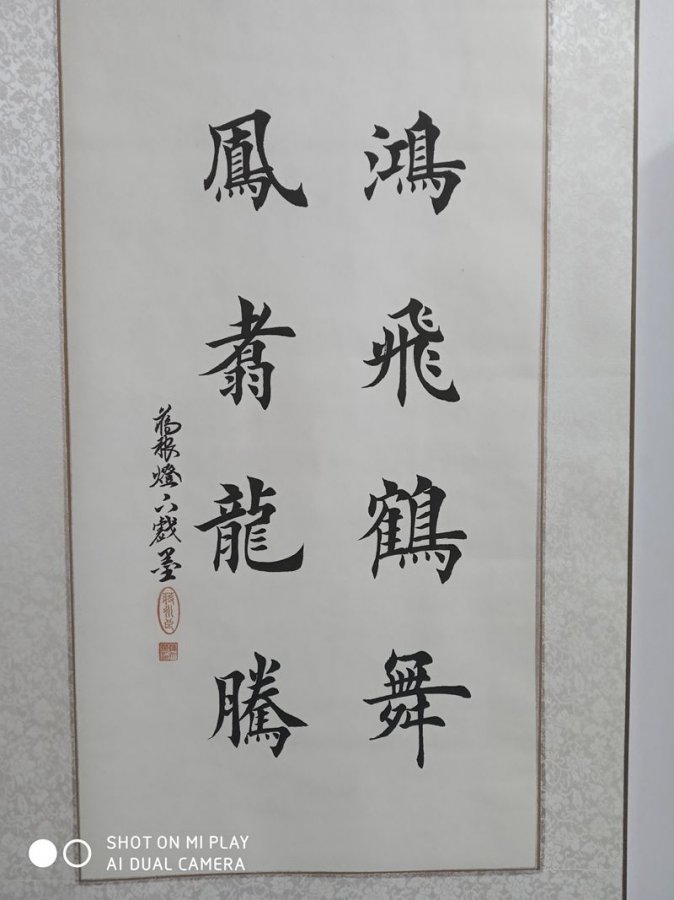 鴻飛鶴舞
鳳翥龍騰
燈下戲墨
SHOT ON MI PLAY
AI DUAL CAMERA